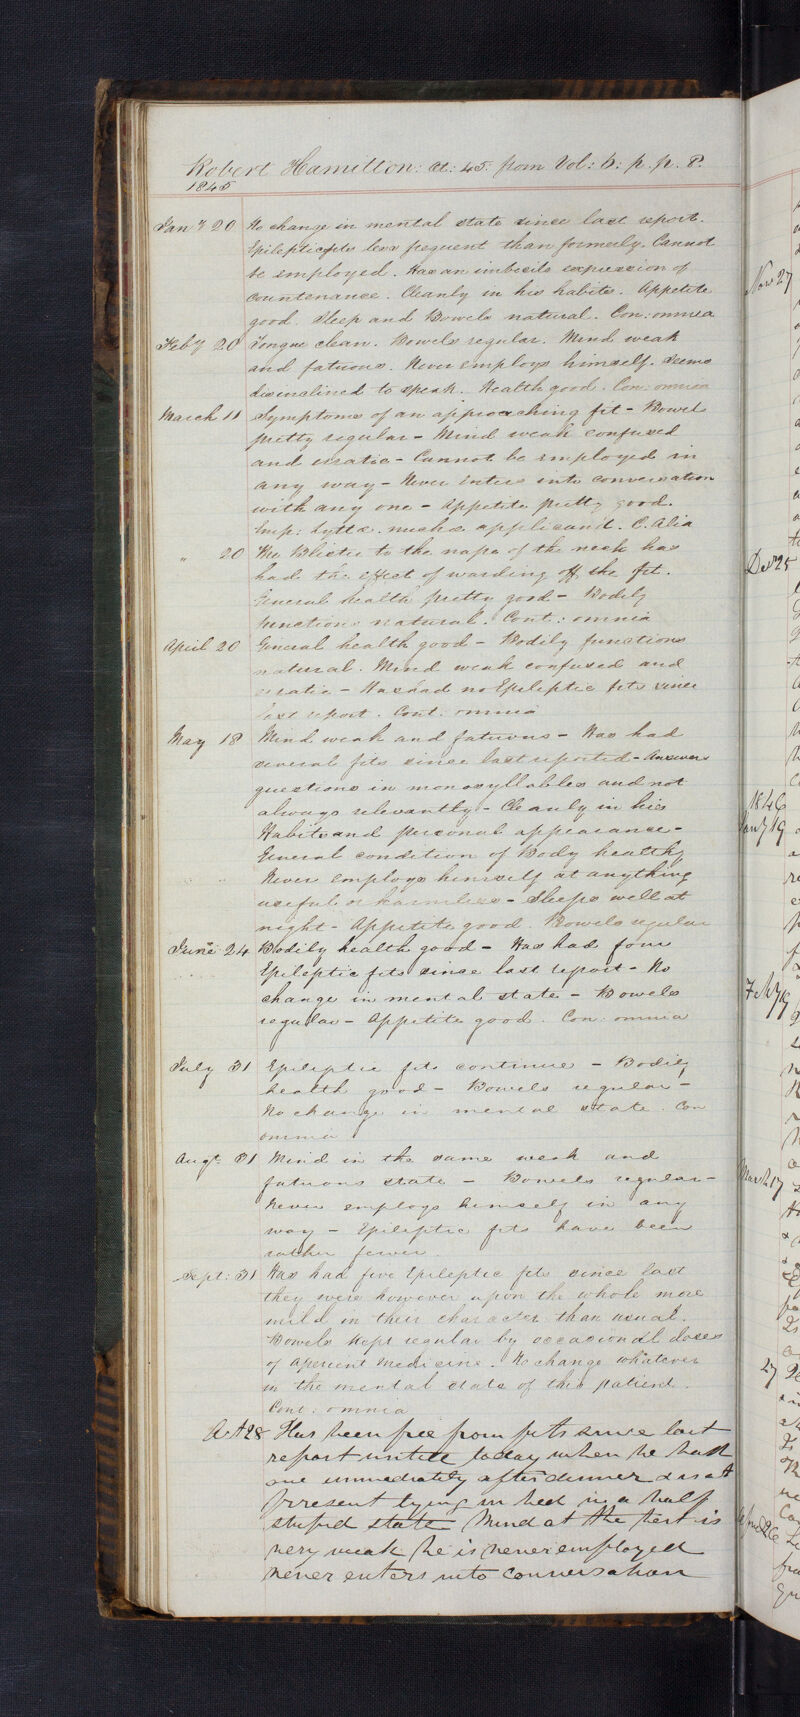 Robert Hamilton: Æt: 45. from Vol: 6: p. p. 8.
1845
Jany 20 No change in mental state since last report.
Epileptic fits less frequent than formerly. Cannot
be employed. Has an imbecile expression of
countenance. Cleanly in his habits. Appetite
good. Sleep and Bowels natural. Con: omnia
Feby 20 Tongue clean. Bowels regular. Mind weak
and fatuous. Never employs himself. Seems
disinclined to speak. Health good. Con: omnia
March 11 Symptoms of an approaching fit - Bowels
pretty regular - Mind weak confused
and erratic - Cannot be employed in
any way - Never enters into conversation
with any one - Appetite pretty good.
Emp: Lyttæ nuchæ applicand. C. Alia
" 20 The Blister to the nape of the neck has
had the effect of warding off the fit.
General health pretty good - Bodily
functions natural. Cont: omnia
April 20 General health good - Bodily functions
natural. Mind weak confused and
erratic - Has had no Epileptic fits since
last report. Cont: omnia
May 18 Mind weak and fatuous - Has had
several fits since last reported - Answers
questions in monosyllables and not
always relevantly - Cleanly in his
Habits and personal appearance -
General condition of Body healthy
Never employs himself at anything
useful or harmless - Sleeps well at
night - Appetite good. Bowels regular
June 24 Bodily health good - Has had four
Epileptic fits since last report - No
change in mental state - Bowels
regular - Appetite good. Con: omnia
July 31 Epileptic fits continue - Bodily
health good - Bowels regular -
No change in mental state. Con
omnia
Augt. 31 Mind in the same weak and
fatuous state - Bowels regular -
Never employs himself in any
way - Epileptic fits have been
rather fewer.
Sept: 31 Has had five Epileptic fits since last
they were however upon the whole more
mild in their character than usual.
Bowels kept regular by occasional doses
of aperient medicine. No change whatever
in the mental state of this patient.
Cont: omnia
Oct 28 Has been free from fits since last
report untill today when he had
one immediately after dinner & is at
present lying in bed in a half
stupid state Mind at the best is
very weak he is never employed
never enters into conversation
Nov 27
Decr 25
1846
Jany 19
Feby 19
March 17
27
April 26